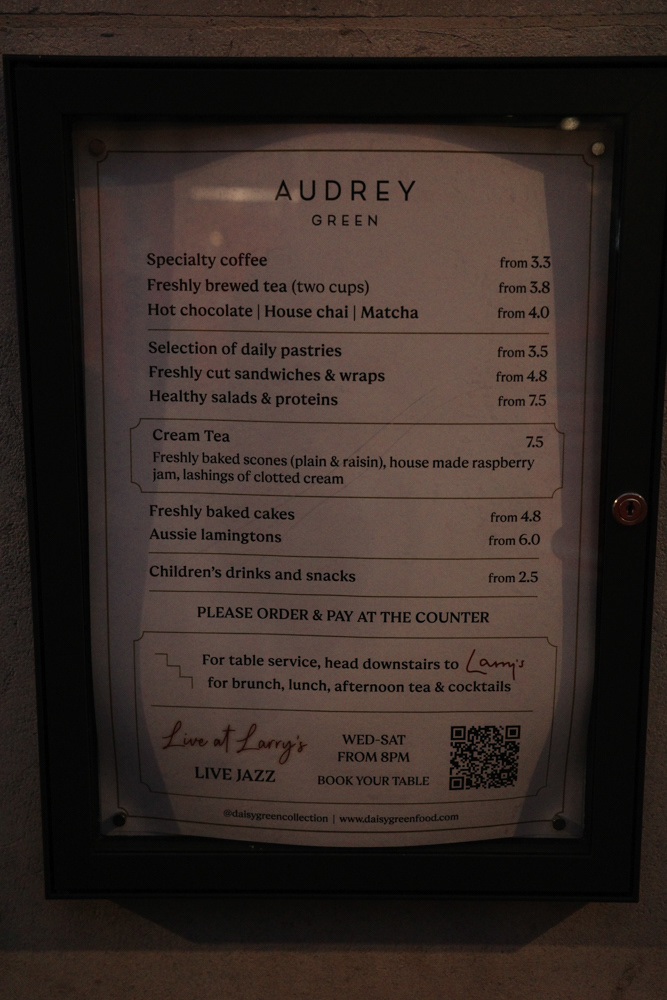 AUDREY
GREEN
Specialty coffee from 3.3
Freshly brewed tea (two cups) from 3.8
Hot chocolate | House chai | Matcha from 4.0
Selection of daily pastries from 3.5
Freshly cut sandwiches & wraps from 4.8
Healthy salads & proteins from 7.5
Cream Tea 7.5
Freshly baked scones (plain & raisin), house made raspberry
jam, lashings of clotted cream
Freshly baked cakes from 4.8
Aussie lamingtons from 6.0
Children's drinks and snacks from 2.5
PLEASE ORDER & PAY AT THE COUNTER
For table service, head downstairs to Larry's
for brunch, lunch, afternoon tea & cocktails
Live at Larry's
LIVE JAZZ
WED-SAT
FROM 8PM
BOOK YOUR TABLE
@daisygreencollection | www.daisygreenfood.com